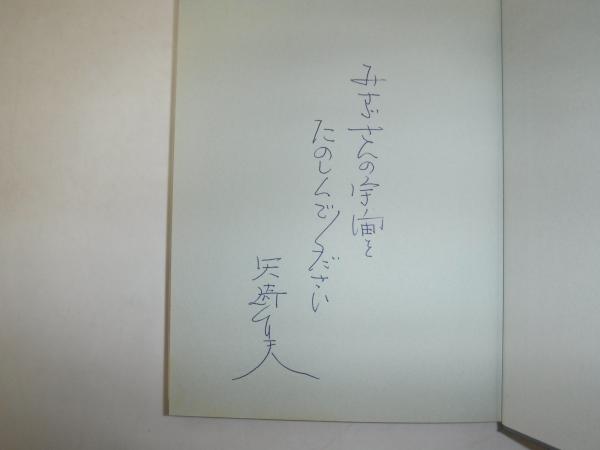 みすゞさんの宇宙を
たのしんでください
矢崎節夫